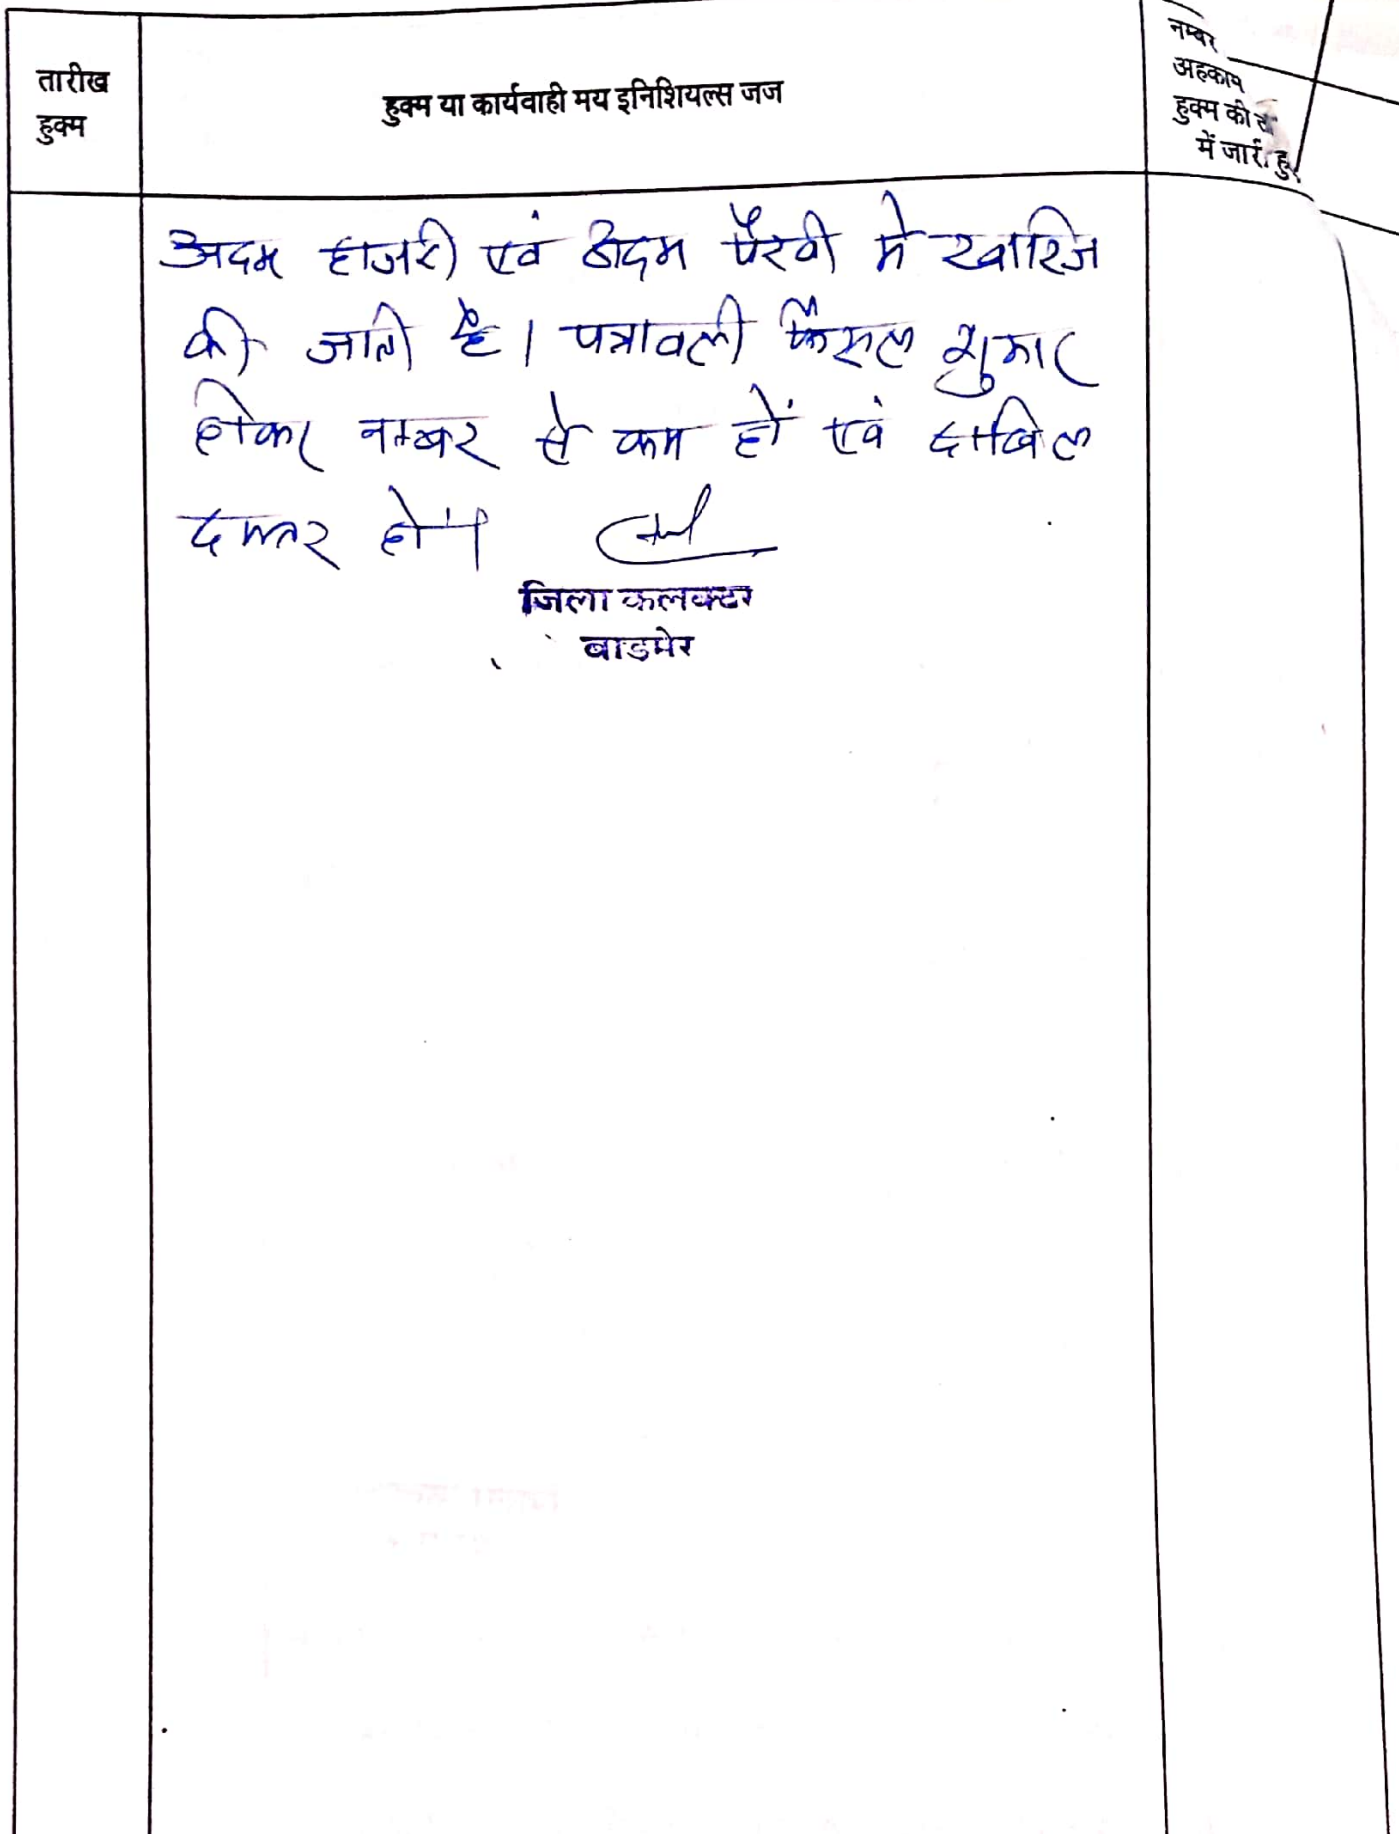 तारीख
हुक्म
हुक्म या कार्यवाही मय इनिशियल्स जज
नम्बर
अहकाम
हुक्म की
में जारी हु
अदम हाजरी एवं अदम पैरवी मे खारिज
की जाती है। पत्रावली फैसल शुमार
होकर नम्बर से कम हों एवं दाखिल
दफ्तर हो।
जिला कलक्टर
बाडमेर